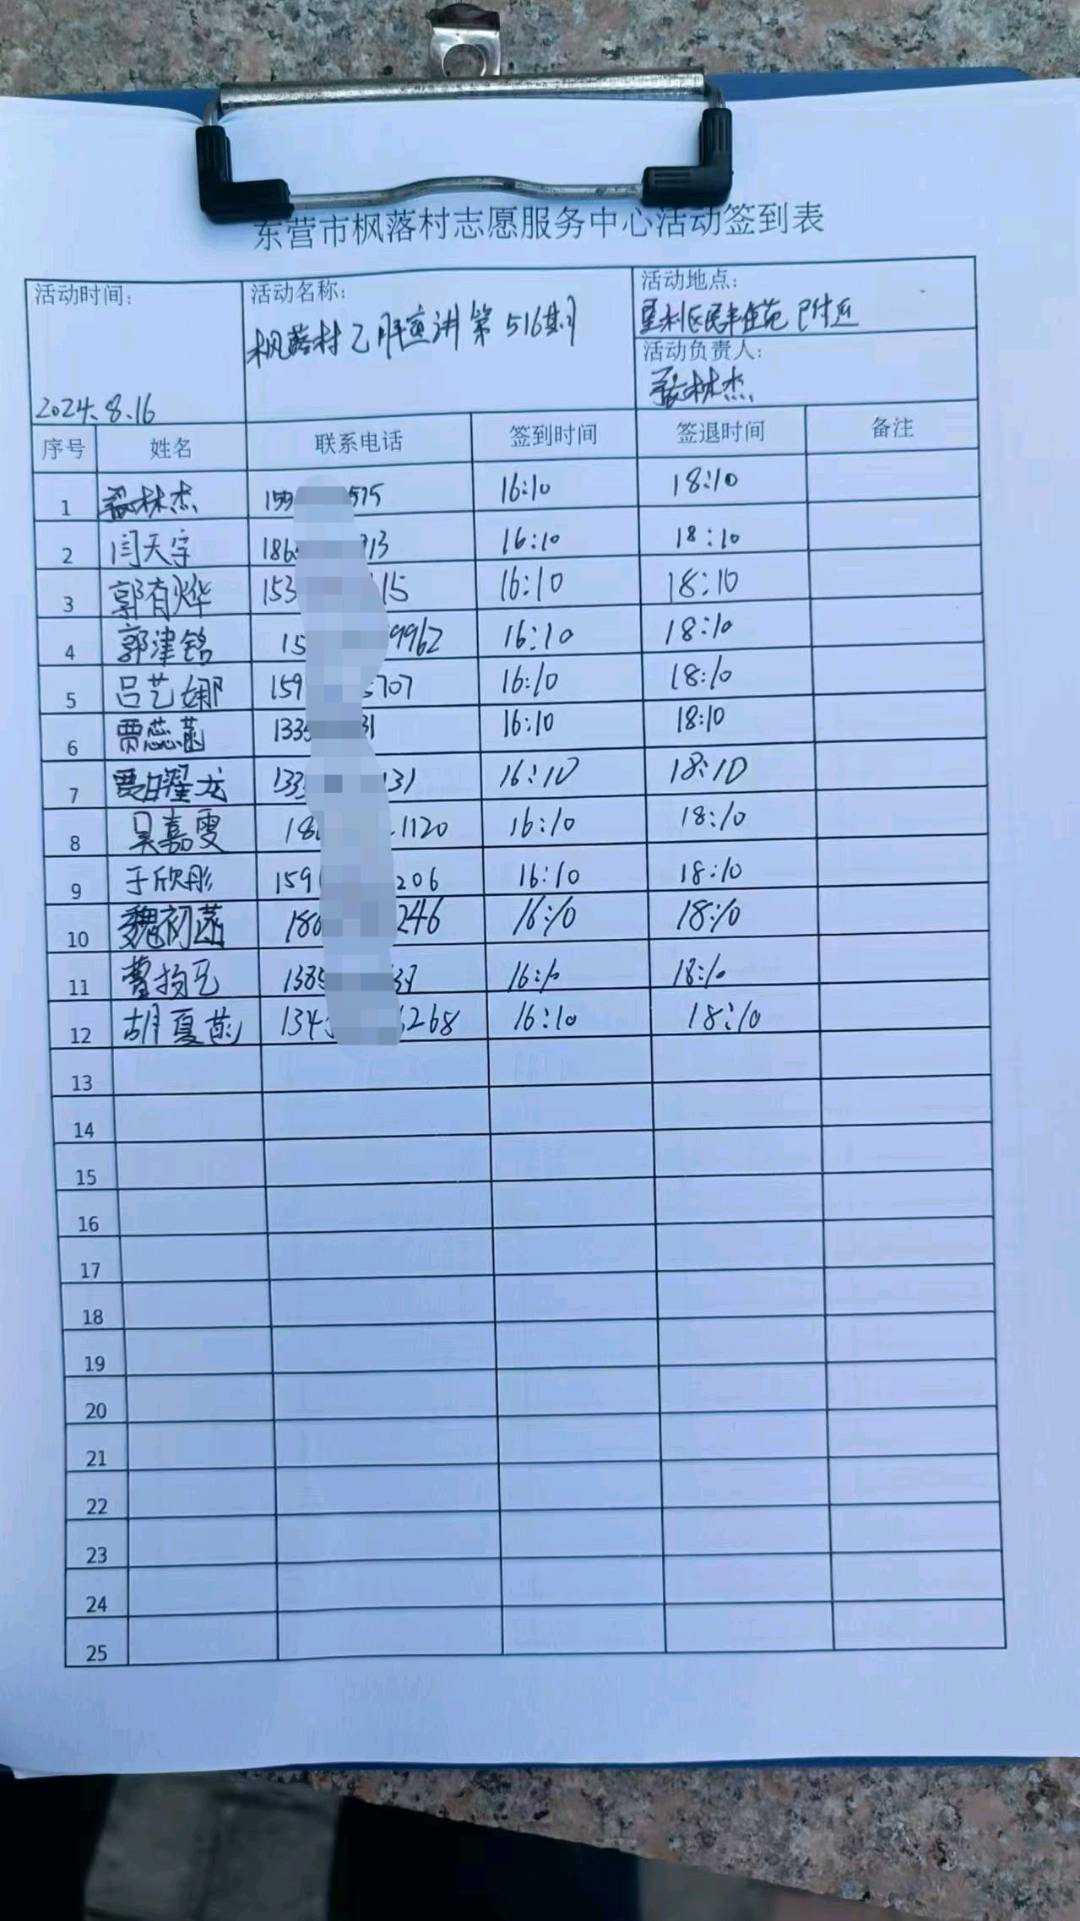 东营市枫落村志愿服务中心活动签到表
活动时间: 2024.8.16
活动名称: 枫落村乙肝宣讲第516期
活动地点: 垦利区民丰佳苑附近
活动负责人: 张林杰
序号 姓名 联系电话 签到时间 签退时间 备注
1 张林杰 159 575 16:10 18:10
2 闫天宇 186 913 16:10 18:10
3 郭有烨 153 115 16:10 18:10
4 郭津铭 15 9962 16:10 18:10
5 吕艺娜 159 707 16:10 18:10
6 贾蕊菡 133 31 16:10 18:10
7 龙 133 131 16:10 18:10
8 吴嘉雯 18 1120 16:10 18:10
9 于欣彤 159 206 16:10 18:10
10 魏初菡 180 246 16:10 18:10
11 138 37 16:10 18:10
12 胡夏菡 134 268 16:10 18:10
13
14
15
16
17
18
19
20
21
22
23
24
25